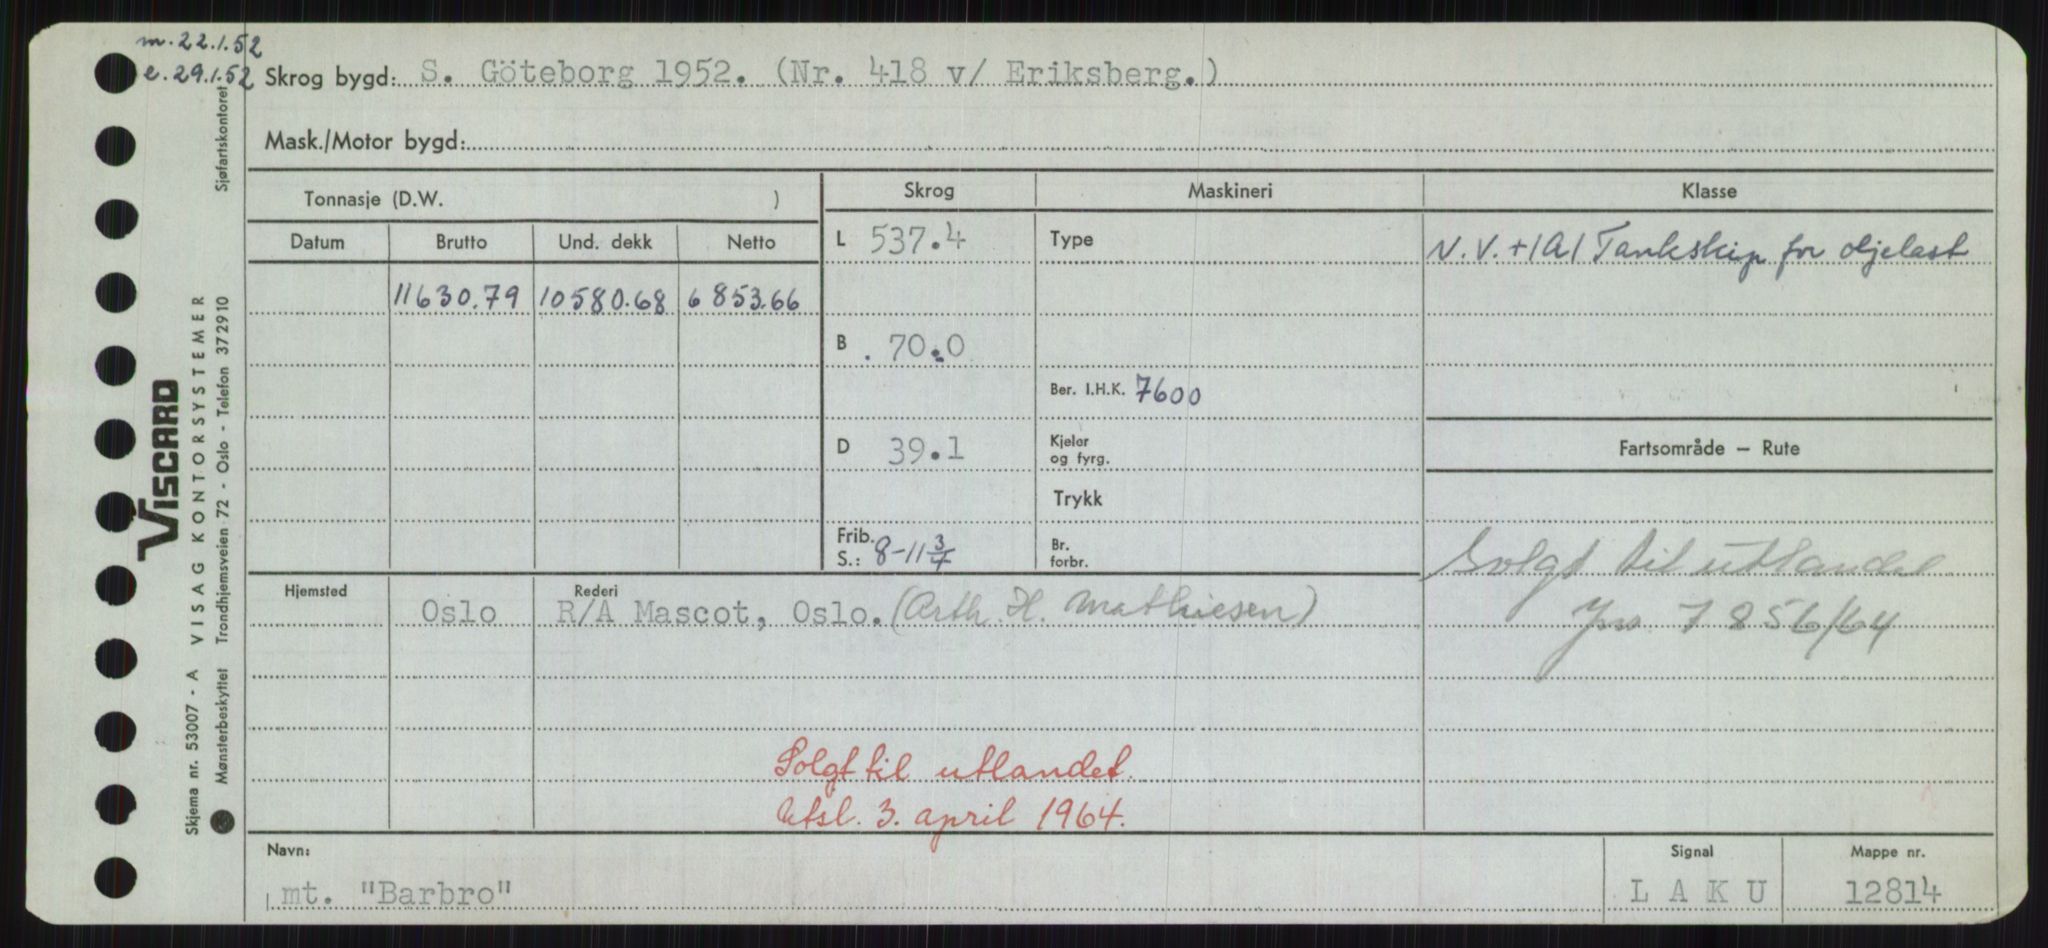 m. 22.1.52
e. 29.1.52
Skrog bygd: S. Göteborg 1952. (Nr. 418 v/ Eriksberg.)
Mask./Motor bygd:
Tonnasje (D.W. )
Skrog
Maskineri
Klasse
Datum
Brutto
Und. dekk
Netto
L 537.4
Type
N.V. +1A1 Tankskip for oljelast
11630.79
10580.68
6853.66
B 70.0
Ber. I.H.K. 7600
D 39.1
Kjeler og fyrg.
Fartsområde — Rute
Trykk
Frib. S.: 8-11 3/4
Br. forbr.
Solgt til utlandet
Jnr. 7856/64
Hjemsted
Rederi
Oslo
R/A Mascot, Oslo. (Arth. H. Mathiesen)
Solgt til utlandet.
Utsl. 3. april 1964.
Navn:
mt. "Barbro"
Signal
L A K U
Mappe nr.
12814
VISCARD
VISAG KONTORSYSTEMER
Skjema nr. 53007 - A
Mønsterbeskyttet Trondhjemsveien 72 - Oslo - Telefon 372910
Sjøfartskontoret